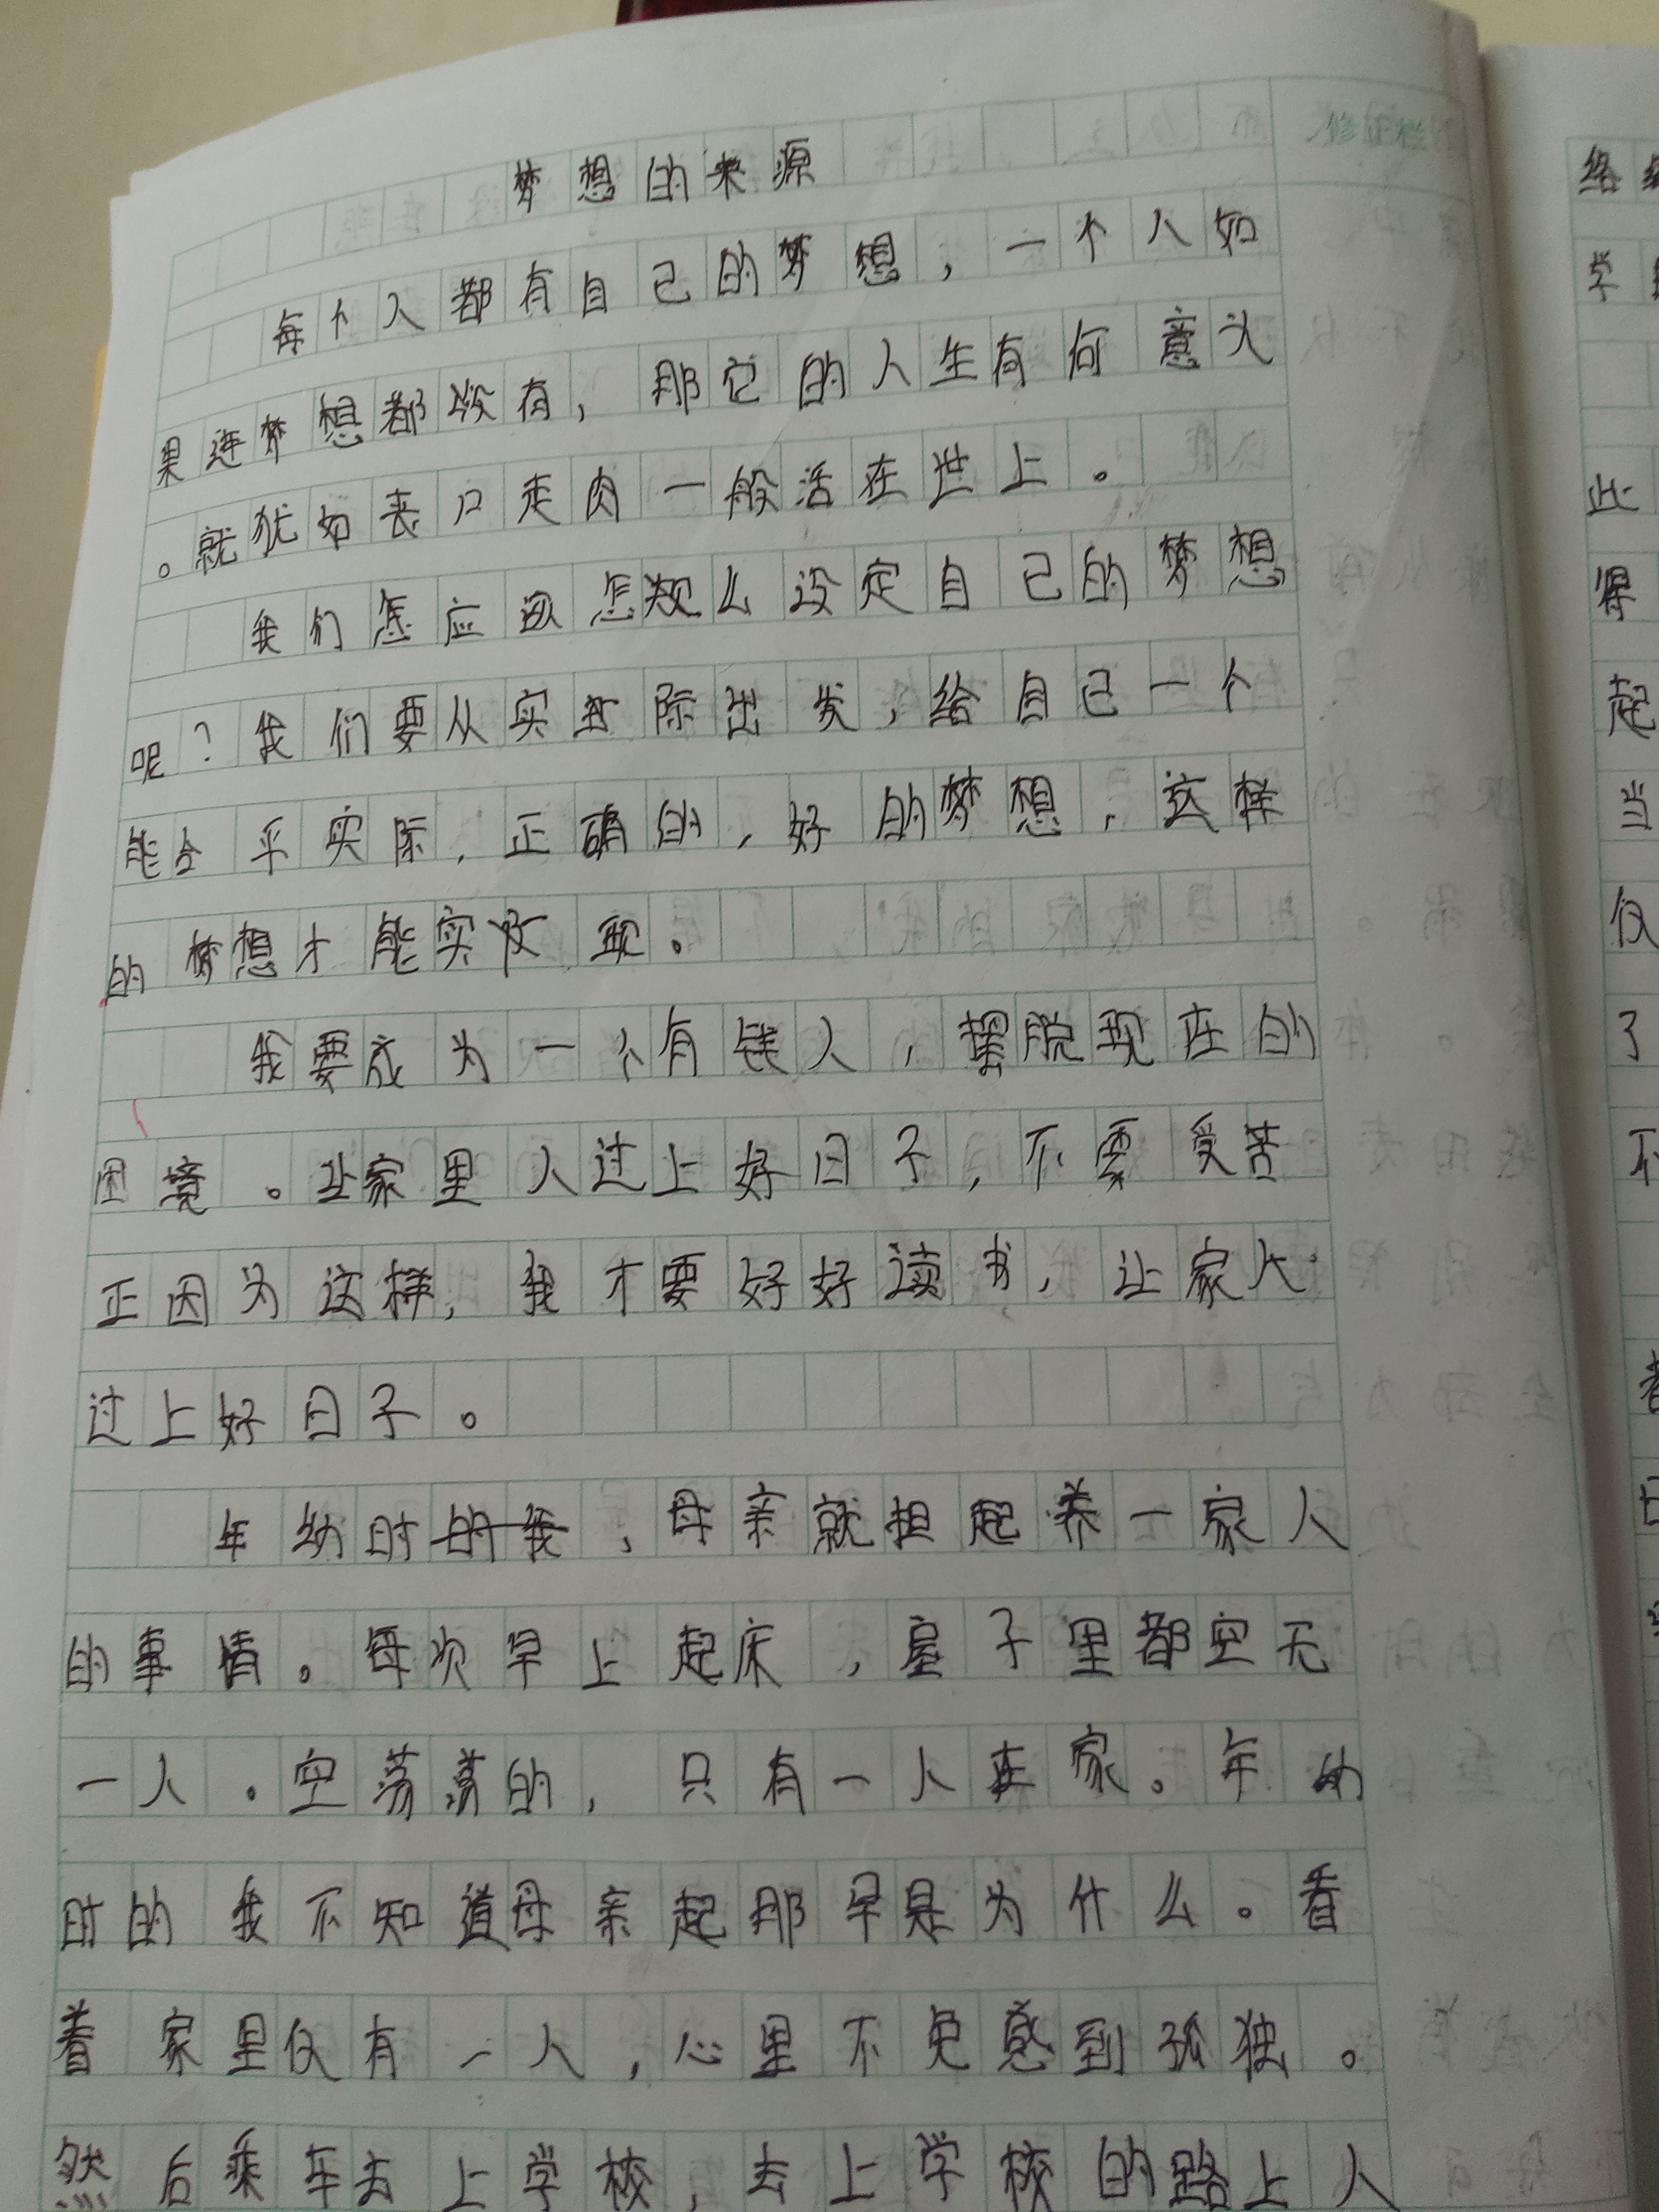 修正栏
梦想的来源
每个人都有自己的梦想，一个人如
果连梦想都没有，那它的人生有何意义
。就犹如丧尸走肉一般活在世上。
我们怎应该怎么设定自己的梦想
呢？我们要从实际出发，给自己一个
能合乎实际，正确的，好的梦想，这样
的梦想才能实现。
我要成为一个有钱人，摆脱现在的
困境。让家里人过上好日子，不需受苦
正因为这样，我才要好好读书，让家人
过上好日子。
年幼时的我，母亲就担起养一家人
的事情。每次早上起床，屋子里都空无
一人。空荡荡的，只有一人在家。年幼
时的我不知道母亲起那早是为什么。看
着家里仅有一人，心里不免感到孤独。
然后乘车去上学校，去上学校的路上人
络
学
此
得
起
当
仅
了
不